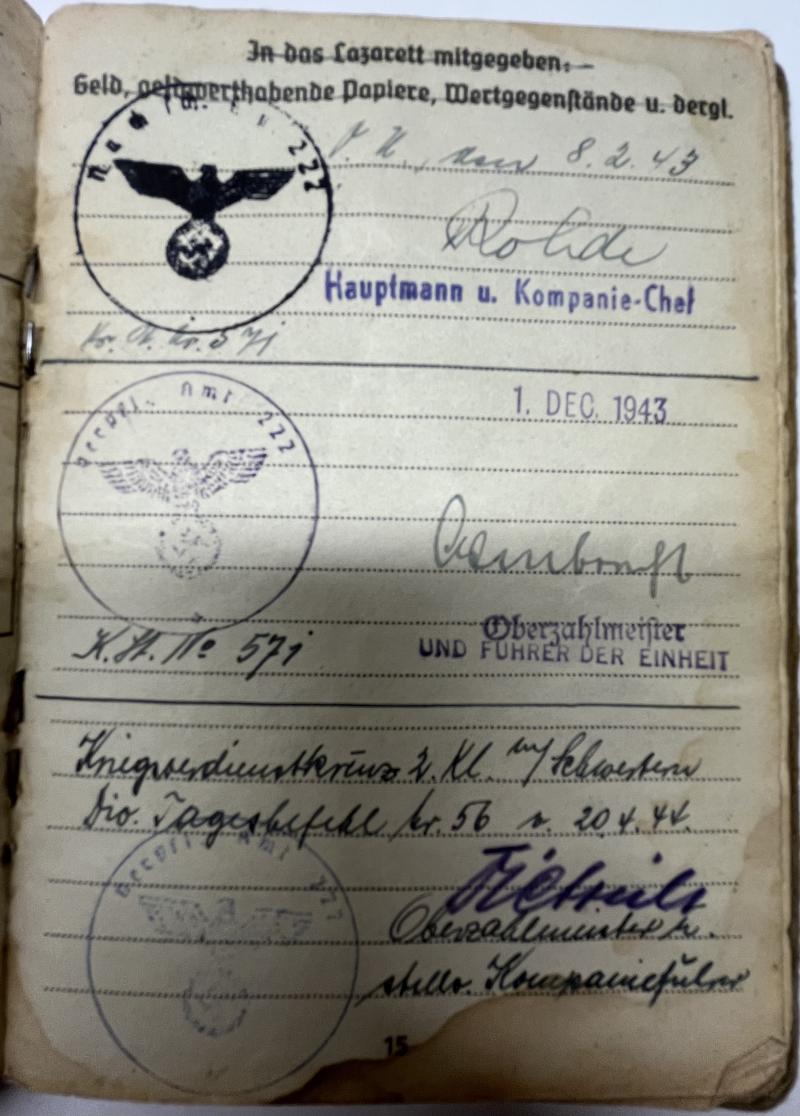 In das Lazarett mitgegeben: –
Geld, geldwerthabende Papiere, Wertgegenstände u. dergl.
O. U., den 8.2.43
Rohde
Hauptmann u. Kompanie-Chef
222
571
1. DEC. 1943
Verpfl. Amt 222
Oberzahlmeister
UND FÜHRER DER EINHEIT
K.St. No 571
Kriegsverdienstkreuz 2. Kl. m/ Schwertern
Div. Tagesbefehl Nr. 56 v. 20.4.44.
Verpfl. Amt 222
Oberzahlmeister u.
stellv. Kompanieführer
15